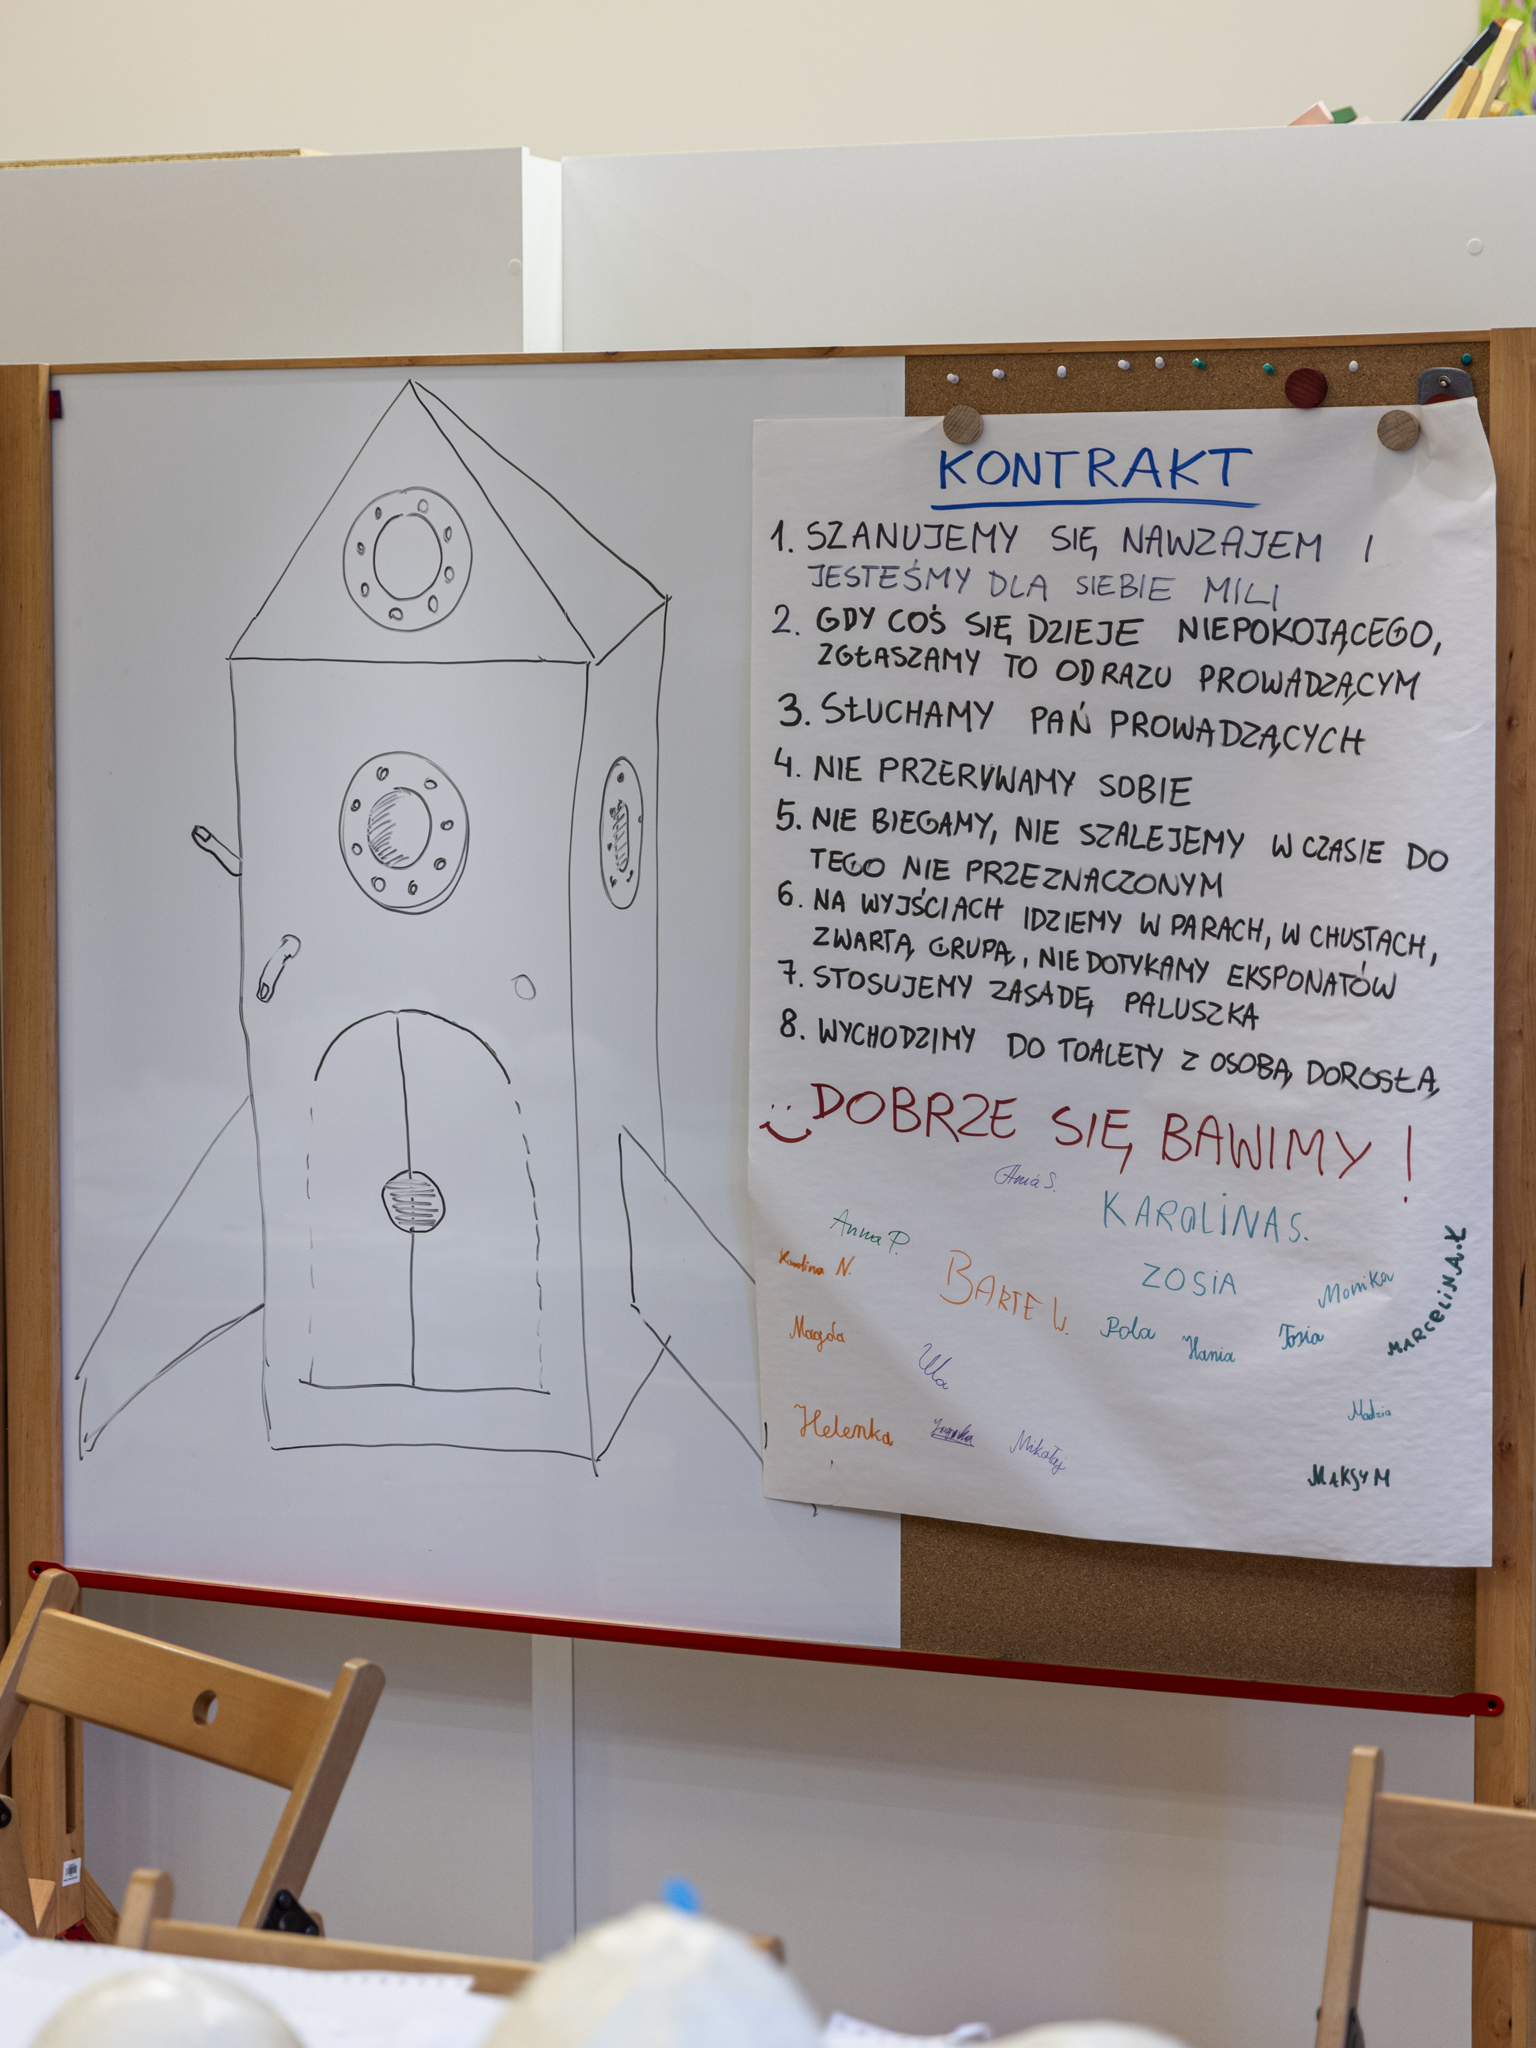 KONTRAKT
1. SZANUJEMY SIĘ NAWZAJEM I
JESTEŚMY DLA SIEBIE MILI
2. GDY COŚ SIĘ DZIEJE NIEPOKOJĄCEGO,
ZGŁASZAMY TO OD RAZU PROWADZĄCYM
3. SŁUCHAMY PAŃ PROWADZĄCYCH
4. NIE PRZERYWAMY SOBIE
5. NIE BIEGAMY, NIE SZALEJEMY W CZASIE DO
TEGO NIE PRZEZNACZONYM
6. NA WYJŚCIACH IDZIEMY W PARACH, W CHUSTACH,
ZWARTĄ GRUPĄ, NIE DOTYKAMY EKSPONATÓW
7. STOSUJEMY ZASADĘ PALUSZKA
8. WYCHODZIMY DO TOALETY Z OSOBĄ DOROSŁĄ
DOBRZE SIĘ BAWIMY !
KAROLINA S.
Anna P.
Karolina N.
BARTE W.
ZOSIA
Monika
MARCELINA.Ł
Magda
Pola
Hania
Tosia
Ula
Helenka
Mikołaj
Madzia
MAKSYM